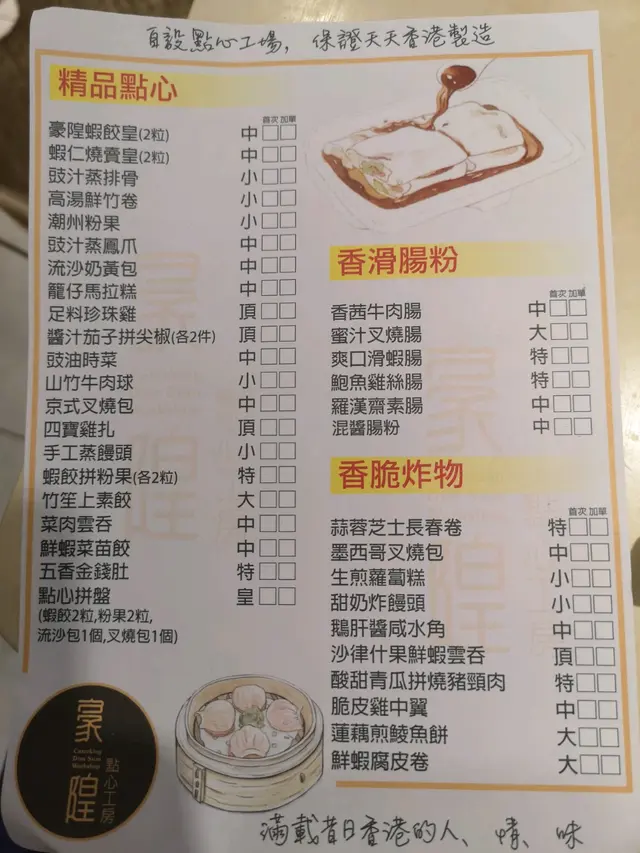 自設點心工場，保證天天香港製造
精品點心
首次 加單
豪隍蝦餃皇(2粒) 中
蝦仁燒賣皇(2粒) 中
豉汁蒸排骨 小
高湯鮮竹卷 小
潮州粉果 小
豉汁蒸鳳爪 中
流沙奶黃包 中
籠仔馬拉糕 中
足料珍珠雞 頂
醬汁茄子拼尖椒(各2件) 頂
豉油時菜 中
山竹牛肉球 小
京式叉燒包 中
四寶雞扎 頂
手工蒸饅頭 小
蝦餃拼粉果(各2粒) 特
竹笙上素餃 大
菜肉雲吞 中
鮮蝦菜苗餃 中
五香金錢肚 特
點心拼盤 皇
(蝦餃2粒,粉果2粒,
流沙包1個,叉燒包1個)
香滑腸粉
首次 加單
香茜牛肉腸 中
蜜汁叉燒腸 大
爽口滑蝦腸 特
鮑魚雞絲腸 特
羅漢齋素腸 中
混醬腸粉 中
香脆炸物
首次 加單
蒜蓉芝士長春卷 特
墨西哥叉燒包 中
生煎蘿蔔糕 小
甜奶炸饅頭 小
鵝肝醬咸水角 中
沙律什果鮮蝦雲吞 頂
酸甜青瓜拼燒豬頸肉 特
脆皮雞中翼 中
蓮藕煎鯪魚餅 大
鮮蝦腐皮卷 大
豪隍
Dim Sum
Workshop
點心工房
滿載昔日香港的人、情、味